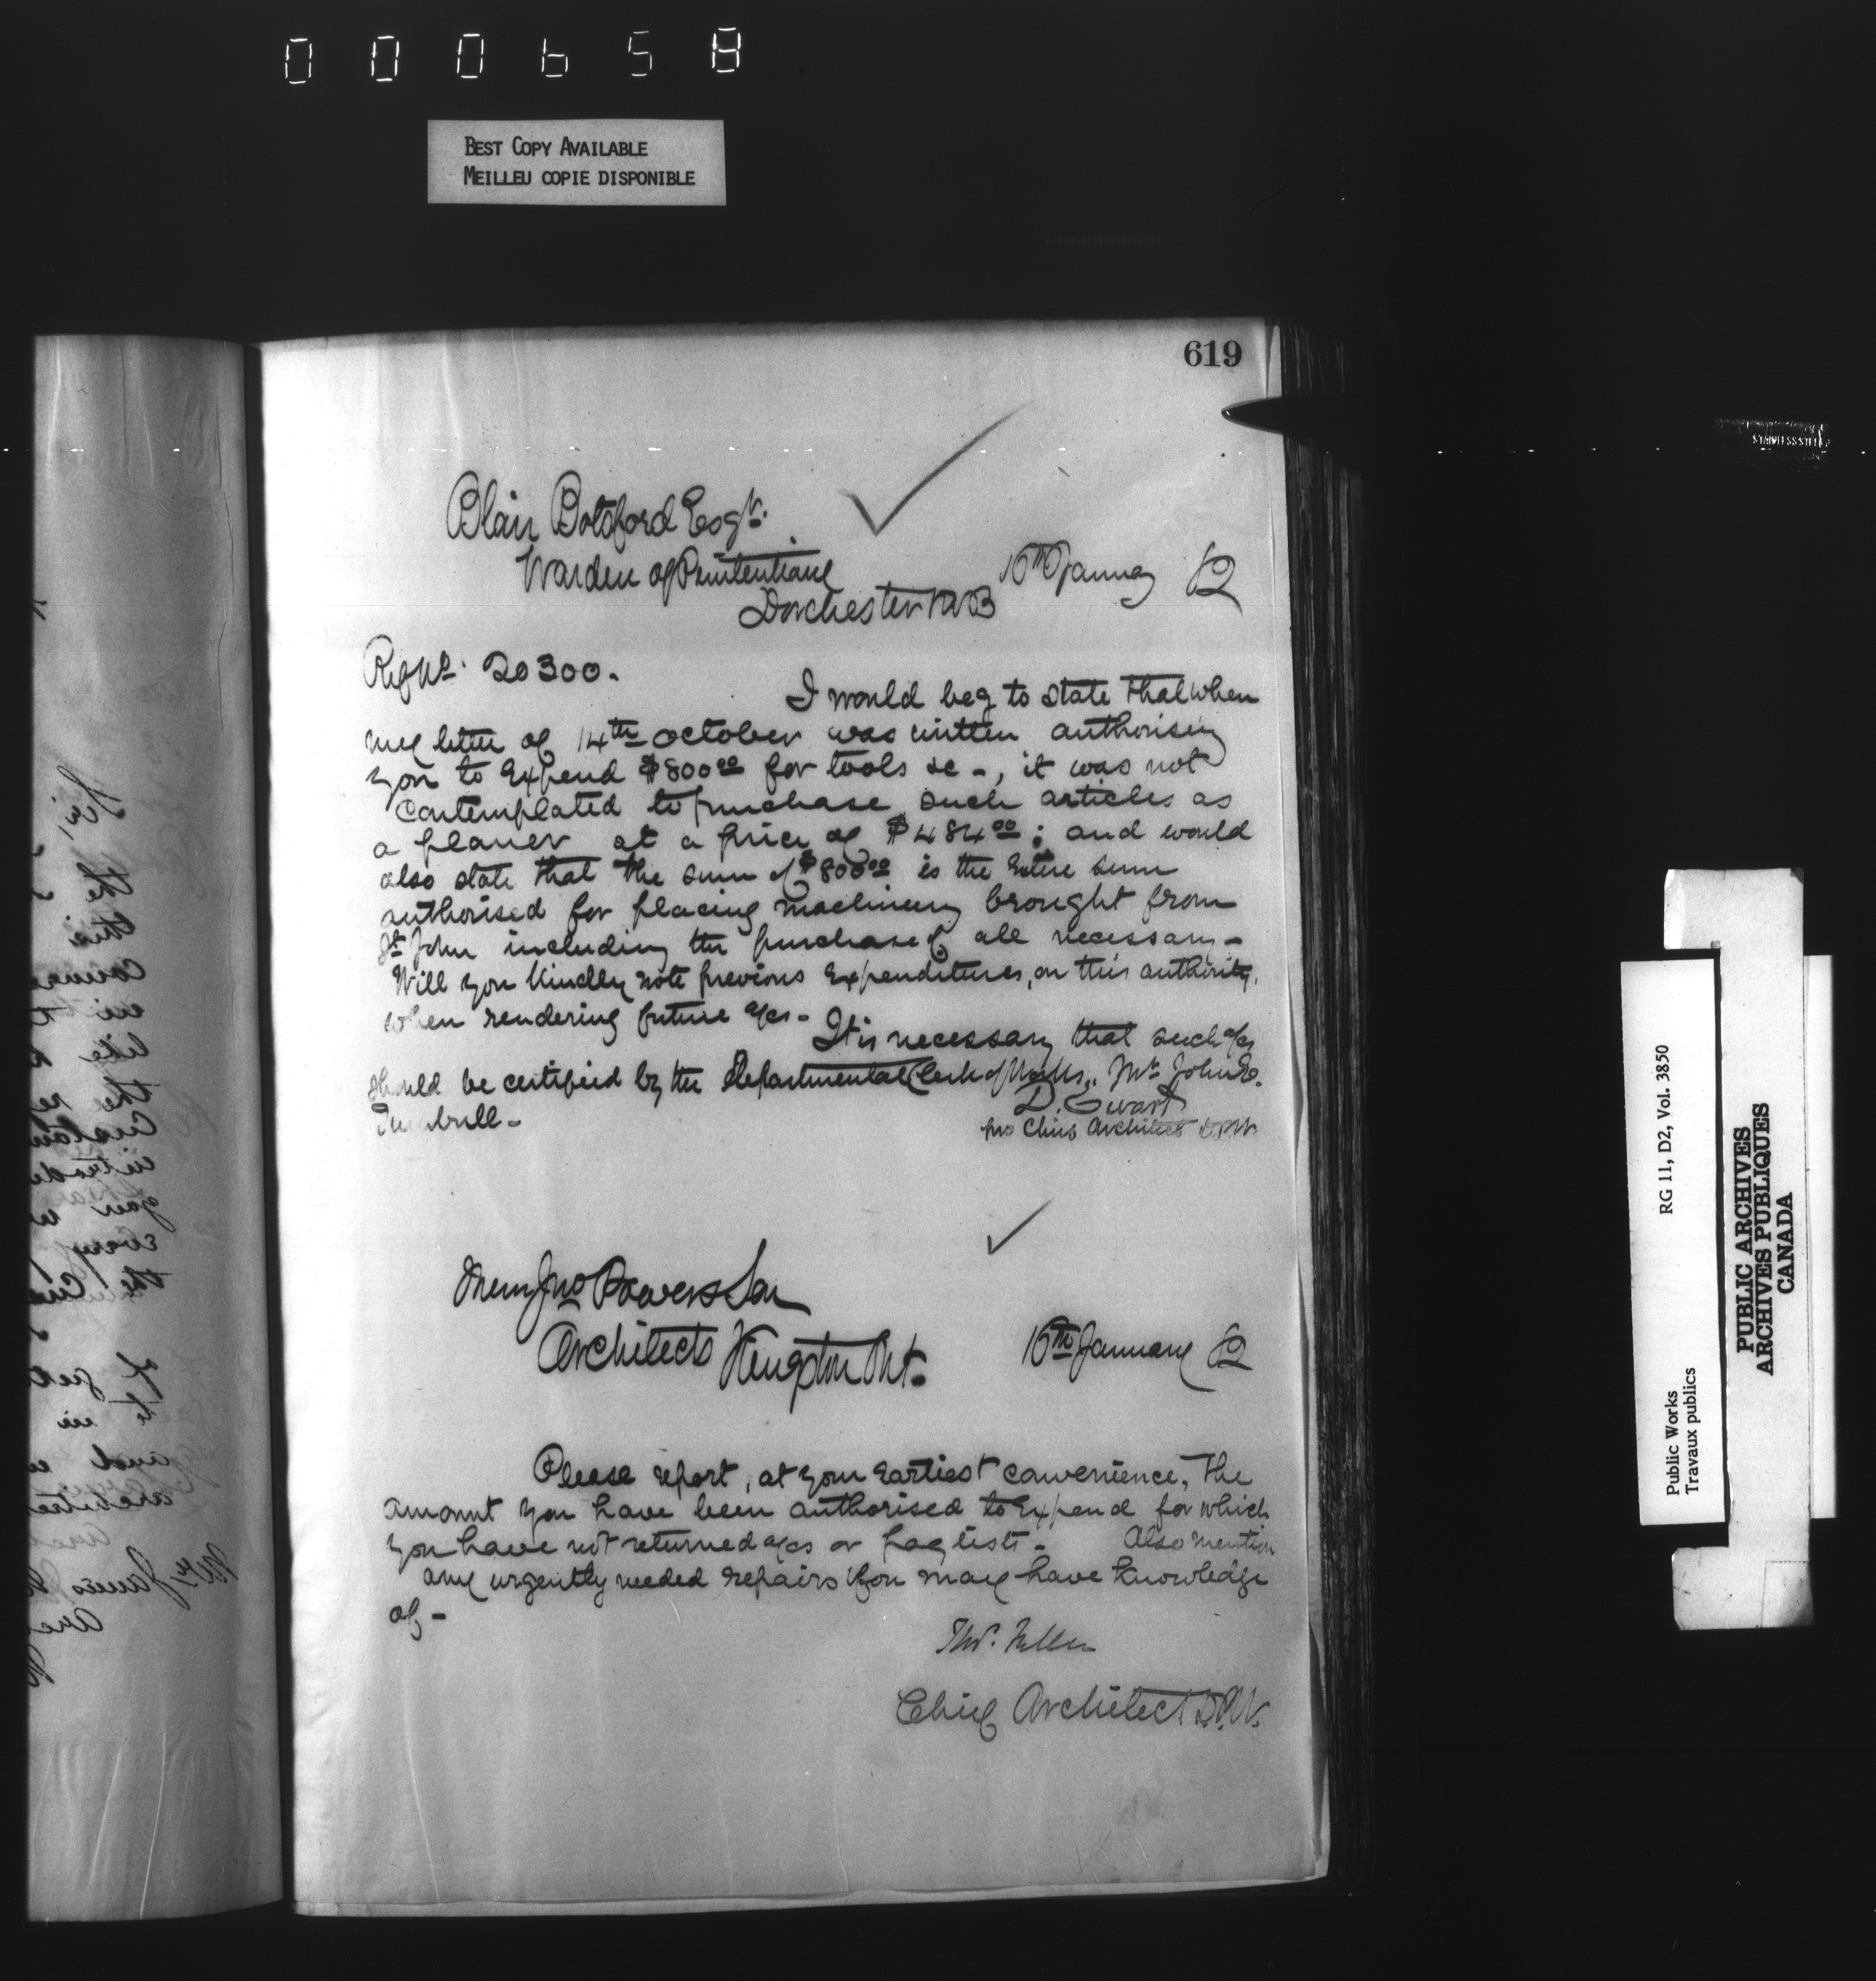 000658
BEST COPY AVAILABLE
MEILLEU COPIE DISPONIBLE
619
Blair Botsford Esqr.
Warden of Penitentiary
Dorchester NB
16th January 82
Ref No. 20300.
I would beg to state that when
my letter of 14th October was written authorising
you to Expend $800 00 for tools &c -, it was not
contemplated to purchase such articles as
a planer at a price of $484 00; and would
also state that the sum of $800 00 is the Entire sum
authorised for placing machinery brought from
St John including the purchase of all necessary -
Will you kindly note previous Expenditures, on this authority,
when rendering future a/cs -
It is necessary that such a/cs
should be certified by the Departmental Clerk of Works, Mr John E.
Turnbull -
D. Ewart
pro Chief Architect D.P.W.
Messrs Jno Power & Son
Architects Kingston Ont.
16th January 82
Please report, at your Earliest convenience, the
amount you have been authorised to Expend for which
you have not returned a/cs or pay lists - Also mention
any urgently needed repairs you may have knowledge
of -
Thos. Fuller
Chief Architect D.P.W.
Public Works
Travaux publics
RG 11, D2, Vol. 3850
PUBLIC ARCHIVES
ARCHIVES PUBLIQUES
CANADA